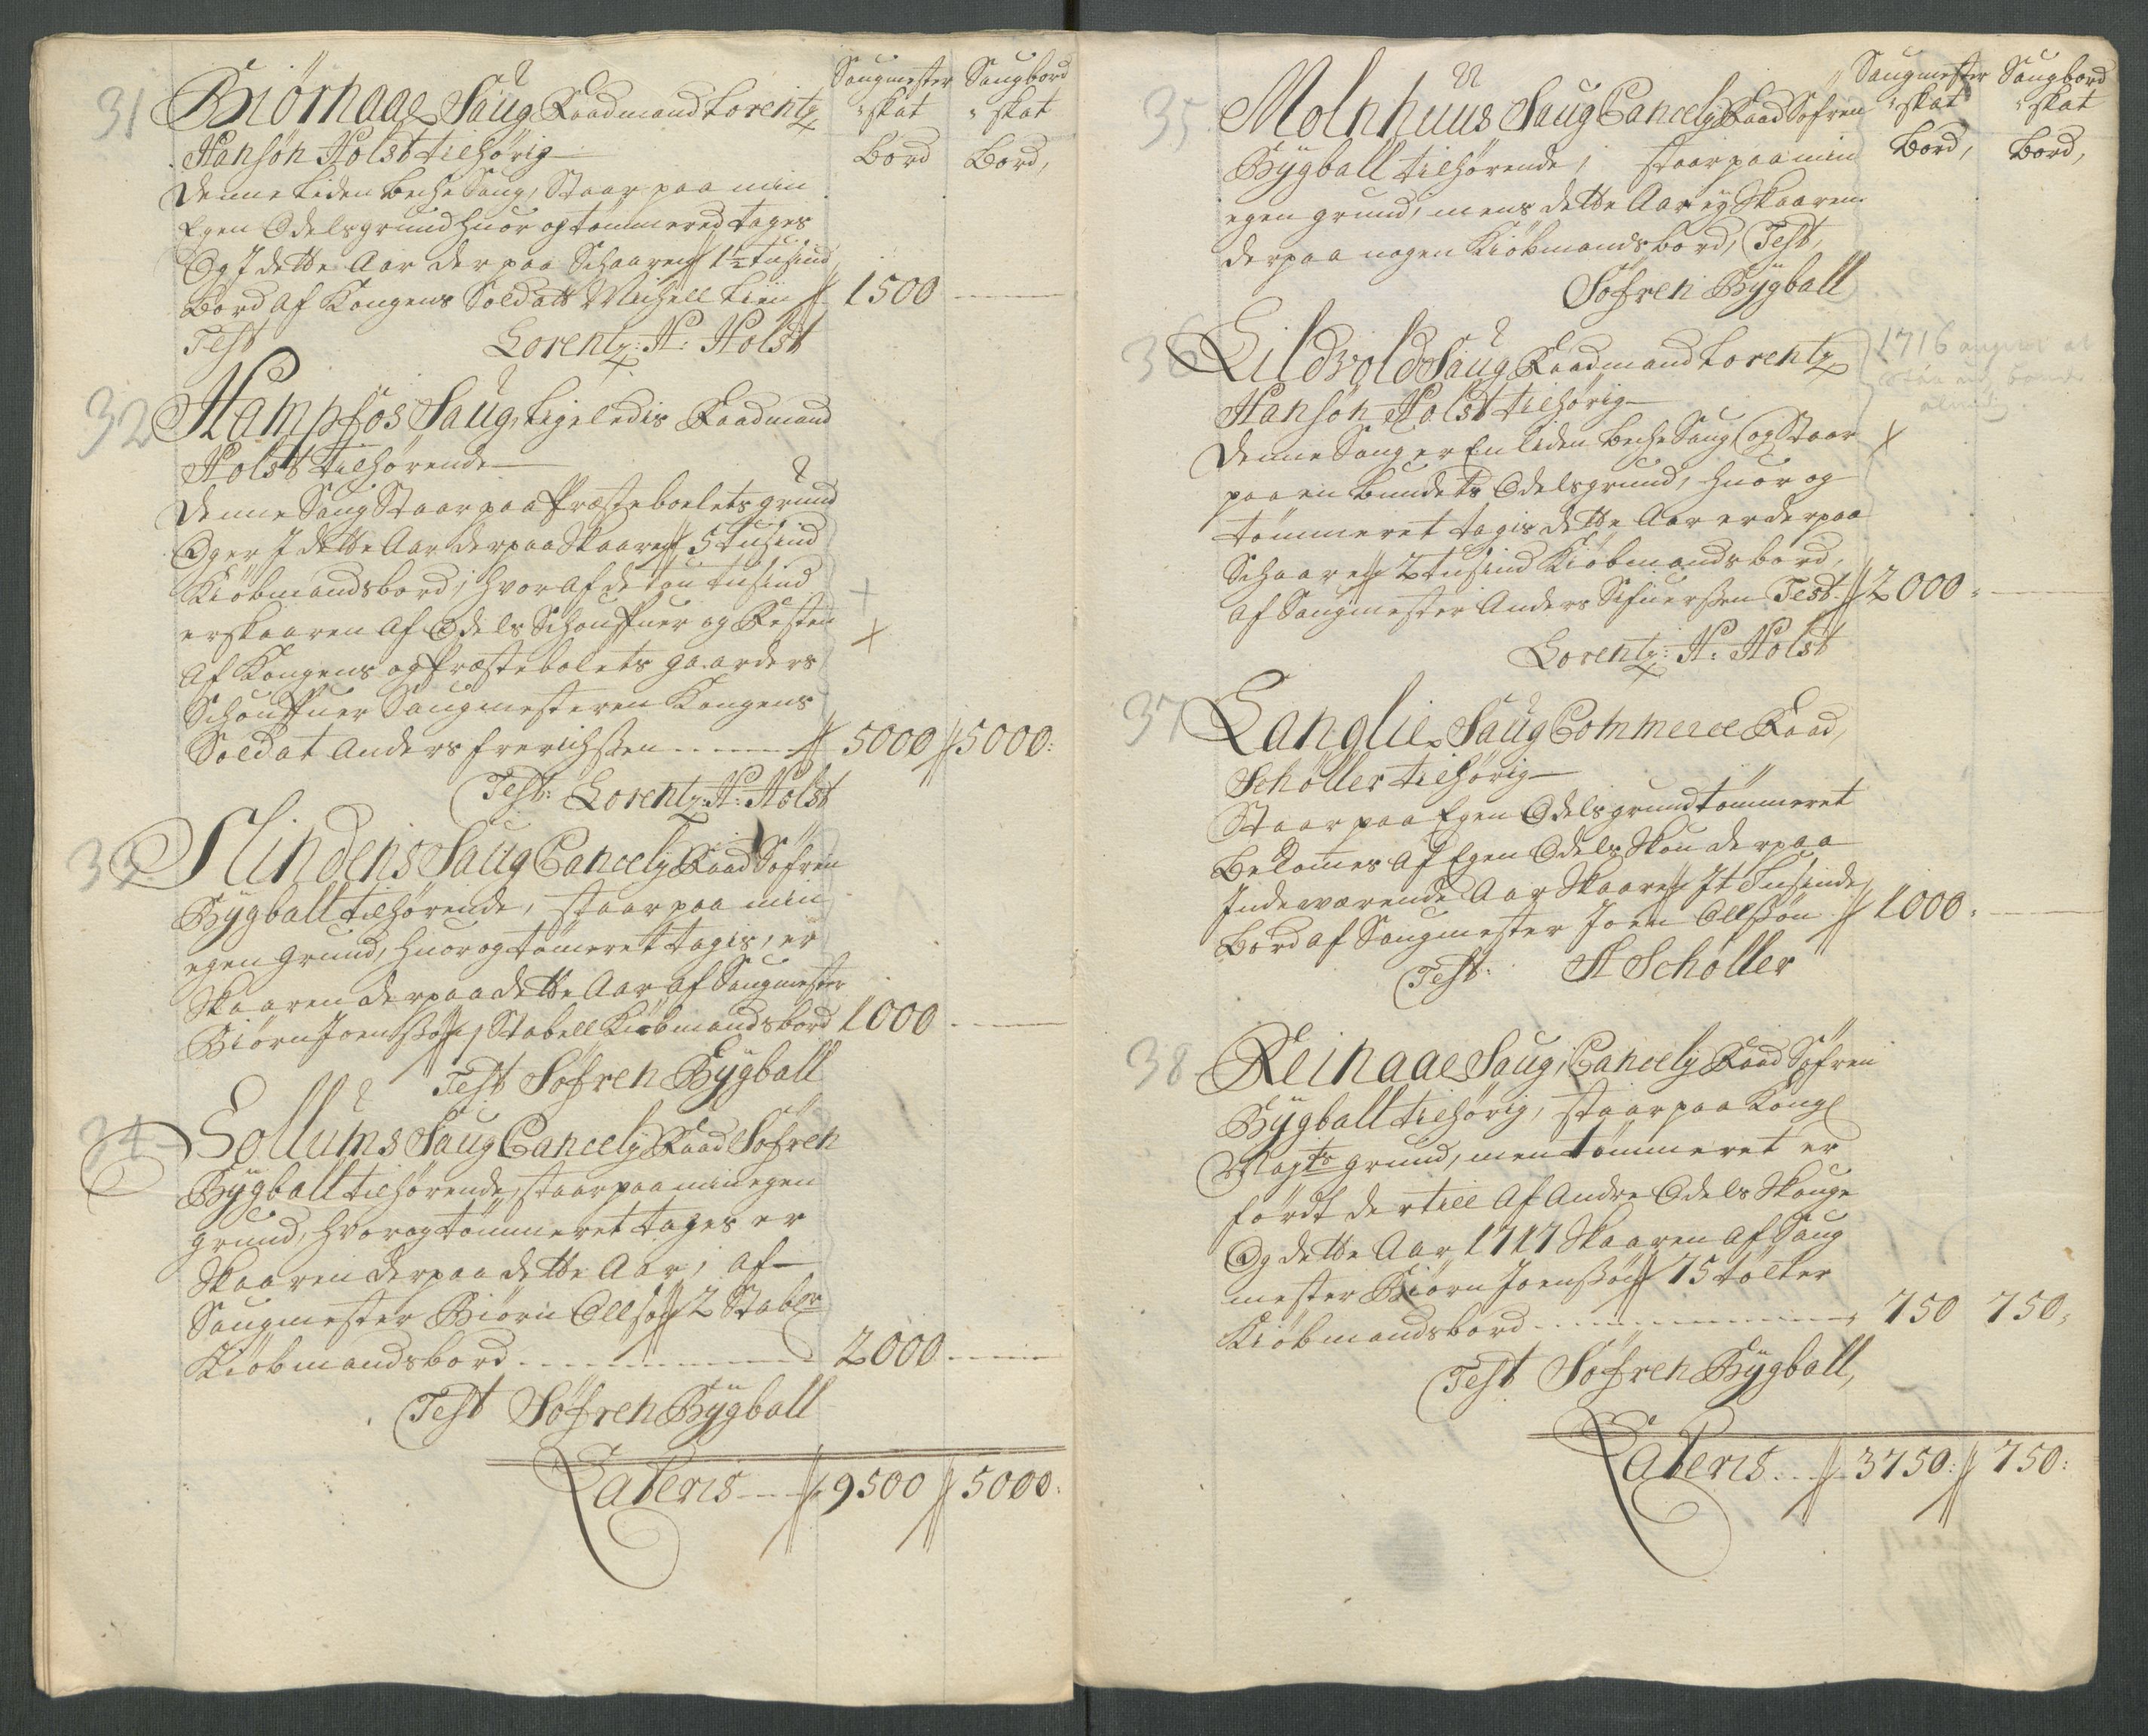 Saugmester Saugbord
skat skat
Bord Bord,
31 Biörnaae Saug Raadmand Lorentz
Hansøn Holst tilhørig
Denne liden beche Saug, Staar paa min
Egen Odelsgrund huor og tømmered tages
Og J dette Aar der paa Schaaren 1½ tusind
Bord af Kongens Soldatt Michell Lien 1500
Test Lorentz: H: Holst
32 Hampfos Saug, ligeledis Raadmand
Holst tilhørende
Denne Saug Staar paa Præsteboelets grund
Og er J dette Aar derpaa Skaaren 5 tusind
Kiøbmandsbord, hvor af de tou tusind
er skaaren af Odels Schouffuer og Resten
af Kongens og Præstebolets gaarders
Schouffuer Saugmesteren Kongens
Soldat Anders Frerichssen 5000 5000:
Test: Lorentz: H: Holst
33 Flindens Saug Cancely Raad Søfren
Bÿgball tilhørende, staar paa min
egen Grund, huor og tømeret tagis, er
Skaaren derpaa dette Aar af Saugmester
Biørn Joenssøn 1 Stabell Kiøbmandsbord 1000
Test Søfren Bÿgball
34 Sollums Saug Cancely Raad Søfren
Bÿgball tilhørende, staar paa min egen
grund, hvor og tømmeret tages er
Skaaren derpaa dette Aar, af
Saugmester Biørn Ollsøn 2 Stabler
Kiøbmandsbord 2000
Test Søfren Bÿgball
Lateris 9500 5000:
Saugmester Saugbord
skat skat
Bord, Bord,
35 Molnhuus Saug Cancely Raad Søfren
Bÿgball tilhørende, staar paa min
egen grund, mens dette Aar ey Skaaren
derpaa nogen Kiøbmandsbord, Test,
Søfren Bÿgball
36 Lildvold Saug Raadmand Lorentz
1716
Hansøn Holst tilhørig
Denne Saug er En liden beche Saug og Staar
paa en bundets Odelsgrund, huor og
tømmeret tagis dette Aar er derpaa
Schaaren 2 tusind Kiøbmandsbord,
af Saugmester Anders Sifuerssen Test. 2000
Lorentz: H: Holst
37 Langlie Saug Commerce Raad,
Schøller tilhørig
Staar paa Egen Odelsgrund tømmeret
Bekomes af Egen Odels Skou derpaa
Indeværende Aar Skaaren Jt Tusinde
Bord af Saugmester Joen Ollssøn 1000
Test: H Schøller
38 Reinaae Saug, Cancely Raad Søfren
Bÿgball tilhørig, staar paa Kongl
Majts grund, men tømmeret er
ført dertill af Andre Odels Skouge
Og dette Aar 1717 Skaaren af Saug
mester Biørn Joenssøn 75 tolter
Kiøbmandsbord 750 750
Test Søfren Bÿgball,
Lateris 3750: 750: